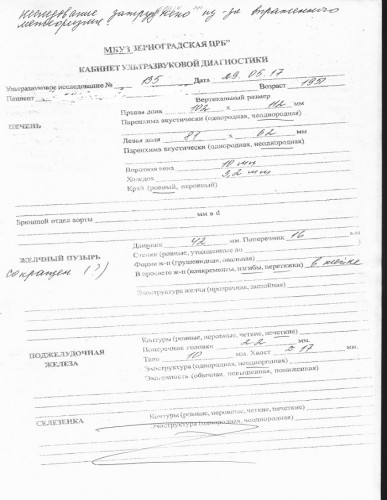 исследование затруднено из-за выраженного
метеоризма
МБУЗ ЗЕРНОГРАДСКАЯ ЦРБ"
КАБИНЕТ УЛЬТРАЗВУКОВОЙ ДИАГНОСТИКИ
Ультразвуковое исследование № 135 Дата 29.05.17
Пациент Возраст 1950
Вертикальный размер
Правая доля 102 х 112 мм
Паренхима акустически (однородная, неоднородная)
ПЕЧЕНЬ
Левая доля 81 х 62 мм
Паренхима акустически (однородная, неоднородная)
Воротная вена 10 мм
Холедох 3,2 мм
Край (ровный, неровный)
Брюшной отдел аорты мм в d
Длинник 42 мм. Поперечник 16 мм
ЖЕЛЧНЫЙ ПУЗЫРЬ Стенки (ровные, утолщенные до
сокращен (?) Форма ж-п (грушевидная, овальная)
В просвете ж-п (конкременты, изгибы, перетяжки) в шейке
Эхоструктура желчи (прозрачная, застойная)
Контуры (ровные, неровные, четкие, нечеткие)
ПОДЖЕЛУДОЧНАЯ Поперечник головки 22 мм.
ЖЕЛЕЗА Тело 10 мм. Хвост 17 мм.
Эхоструктура (однородная, неоднородная)
Эхогенность (обычная, повышенная, пониженная)
Контуры (ровные, неровные, четкие, нечеткие)
СЕЛЕЗЕНКА
Эхоструктура (однородная, неоднородная)